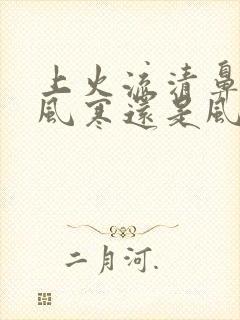 上火流清鼻
風寒還是風
二月河.